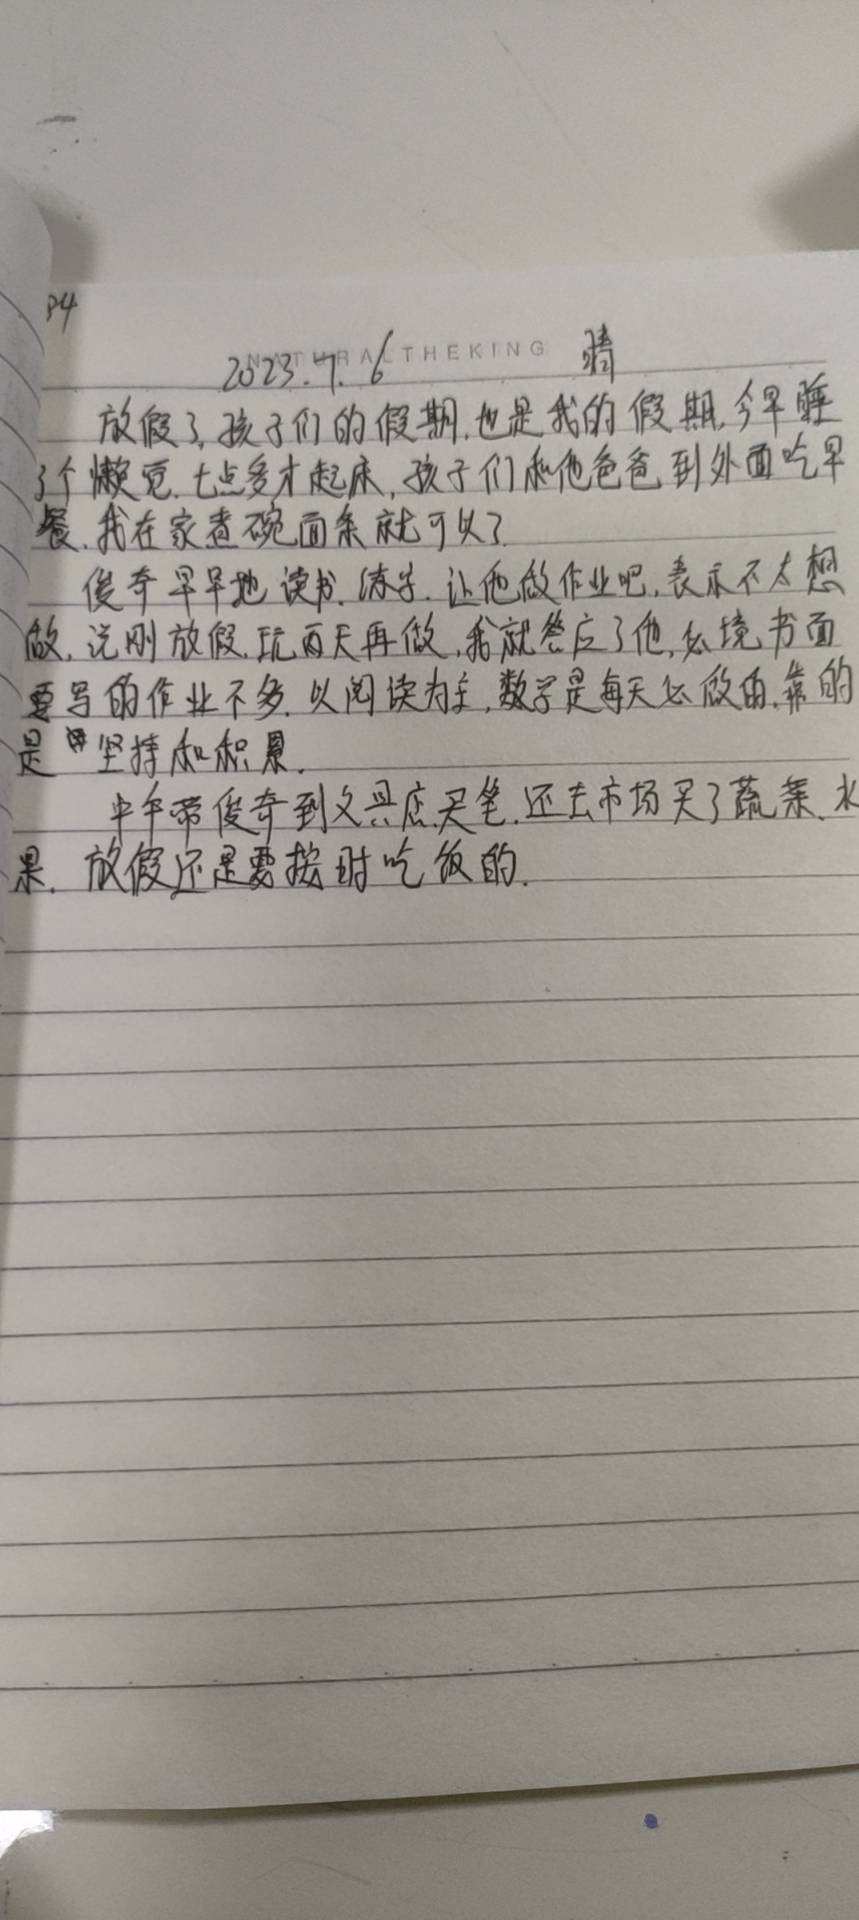 84
NATURALTHEKING
2023.7.6 晴
放假了,孩子们的假期,也是我的假期,今早睡
了个懒觉.七点多才起床,孩子们和他爸爸到外面吃早
餐.我在家煮碗面条就可以了.
俊奇早早地读书.练字.让他做作业吧,表示不太想
做,说刚放假.玩两天再做,我就答应了他,书面
要写的作业不多.以阅读为主,数学是每天必做的.靠的
是坚持和积累.
中午带俊奇到文具店买笔.还去市场买了蔬菜、水
果.放假还是要按时吃饭的.